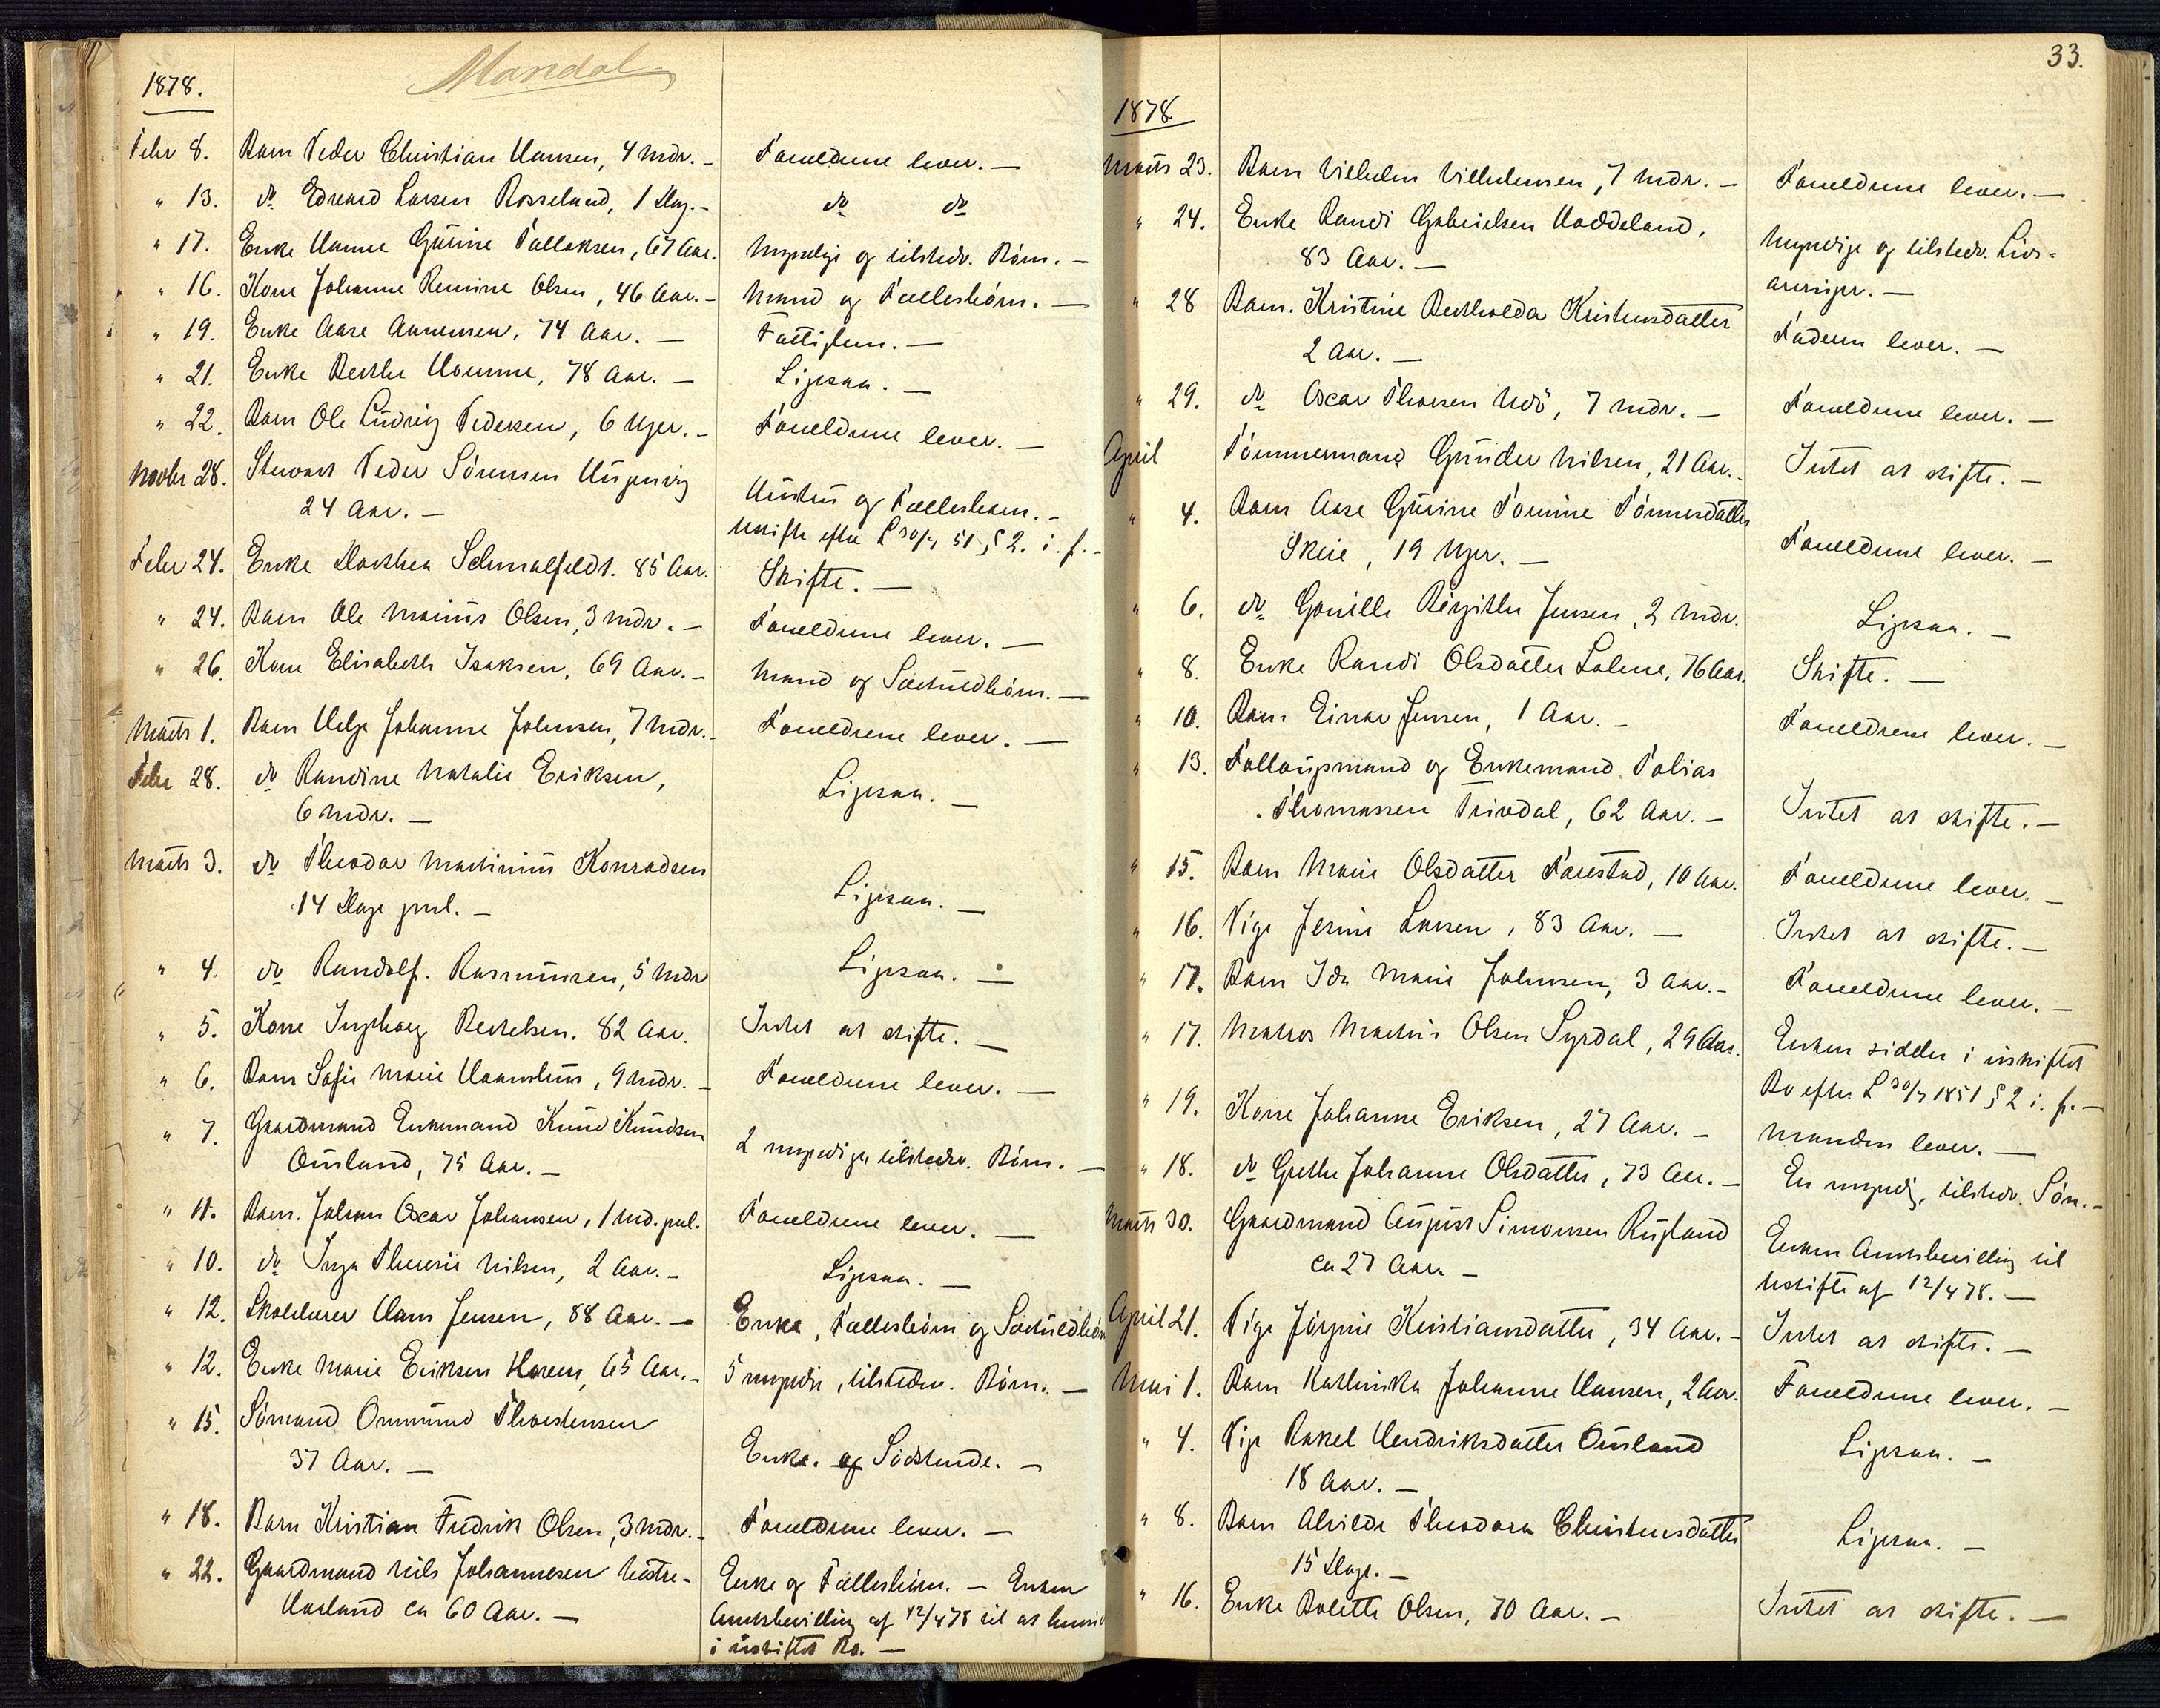 Mandal
1878.
Febr 8. Barn Peder Christian Hansen, 4 Mdr. – Forældrene lever. –
" 13. do Edvard Larsen Rosseland, 1 Dag. – do do
" 17. Enke Hanne Gurine Tallaksen, 67 Aar. Myndige og tilstedv. Børn. –
" 16. Kone Johanne Remine Olsen, 46 Aar. – Mand og Fællesbørn. –
" 19. Enke Aase Aanensen, 74 Aar. – Fattiglem. –
" 21. Enke Berthe 78 Aar. – Ligesaa. –
" 22. Barn Ole Ludvig Pedersen, 6 Uger. – Forældrene lever. –
Novbr 28. Stuvert Peder Sørensen
24 Aar. – Hustru og Fællesbarn. –
Uskifte efter L 30/7 51 § 2. i. f. –
Febr 24. Enke Dorthea Schmalfeldt. 85 Aar. Skifte. –
" 24. Barn Ole Marius Olsen, 3 Mdr. – Forældrene lever. –
" 26. Kone Elisabeth Isaksen, 69 Aar. – Mand og Særkuldbørn. –
Marts 1. Barn Helga Johanne Johnsen, 7 Mdr. – Forældrene lever. –
Febr 28. do Randine Natalie Eriksen,
6 Mdr. – Ligesaa. –
Marts 3. do Theodor Martinius Konradsen
14 Dage gml. – Ligesaa. –
" 4. do Randolf Rasmussen, 5 Mdr Ligesaa. –
" 5. Kone Ingeborg Bertelsen. 82 Aar. Intet at skifte. –
" 6. Barn Sofie Marie 9 Mdr. – Forældrene lever. –
" 7. Gaardmand Enkemand Knud Knudsen
Ousland, 75 Aar. – 2 myndige tilstedv. Børn. –
" 11. Barn Johan Oscar Johansen, 1 Md. gml. Forældrene lever. –
" 10. do Inga Theresie Nilsen, 2 Aar. – Ligesaa. –
" 12. Skolelærer Hans Jensen, 88 Aar. – Enke, Fællesbørn og Særkuldbørn
" 12. Enke Marie Eriksen 65 Aar. – 5 myndige, tilstedv. Børn. –
" 15. Sømand Ommund Thorstensen
37 Aar. – Enke. og Sødskende. –
" 18. Barn Kristian Fredrik Olsen, 3 Mdr. – Forældrene lever. –
" 22. Gaardmand Nils Johannesen
Harland ca 60 Aar. – Enke og Fællesbørn. – Enken
Amtsbevilling af 12/4 78 til at hensidde
i uskiftet Bo. –
33.
1878
Marts 23. Barn Vilhelm Vilhelmsen, 7 Mdr. – Forældrene lever. –
" 24. Enke Randi Gabrielsen Haddeland,
83 Aar. – Myndige og tilstedv. Livs=
arvinger. –
" 28 Barn. Kristine Bertholda Kristensdatter
2 Aar. – Faderen lever. –
" 29. do Oscar Thorsen Udø, 7 Mdr. – Forældrene lever. –
April Tømmermand Gunder Nilsen, 21 Aar. – Intet at skifte. –
" 4. Barn Aase Gurine Tomine Tønnesdatter
Skeie, 19 Uger. – Forældrene lever. –
" 6. do Gunille Birgithe Jensen, 2 Mdr. Ligesaa. –
" 8. Enke Randi Olsdatter Salene, 76 Aar. Skifte. –
" 10. Barn Einar Jensen, 1 Aar. – Forældrene lever. –
" 13. Fattigmand og Enkemand Tobias
Thomassen Trivdal, 62 Aar. – Intet at skifte. –
" 15. Barn Marie Olsdatter Farestad, 10 Aar. Forældrene lever. –
" 16. Pige Jesine Larsen, 83 Aar. – Intet at skifte. –
" 17. Barn Ida Marie Johnsen, 3 Aar. – Forældrene lever. –
" 17. Matros Martin Olsen Syrdal, 29 Aar. Enken sidder i uskiftet
Bo efter L 30/7 1851 § 2 i. f. –
" 19. Kone Johanne Eriksen, 27 Aar. – Manden lever. –
" 18. do Grethe Johanne Olsdatter, 73 Aar. – En myndig, tilstedv. Søn. –
Marts 30. Gaardmand August Simonsen Rugland
ca 27 Aar. – Enken Amtsbevilling til
Uskifte af 12/4 78. –
April 21. Pige Jørgine Kristiansdatter, 34 Aar. – Intet at skifte. –
Mai 1. Barn Kathinka Johanne Hansen, 2 Aar. Forældrene lever. –
" 4. Pige Rakel Hendriksdatter Ousland
18 Aar. – Ligesaa. –
" 8. Barn Alvilde Theodora Christensdatter
15 Dage. – Ligesaa. –
" 16. Enke Bolette Olsen, 70 Aar. – Intet at skifte. –